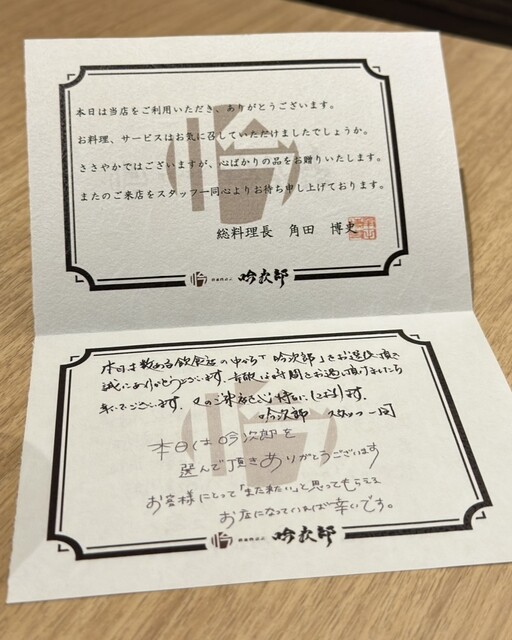 本日は当店をご利用いただき、ありがとうございます。
お料理、サービスはお気に召していただけましたでしょうか。
ささやかではございますが、心ばかりの品をお贈りいたします。
またのご来店をスタッフ一同心よりお待ち申し上げております。
総料理長 角田 博史
吟次郎
本日は数ある飲食店の中から「吟次郎」をお選び頂き
誠にありがとうございます。素敵な時間をお過し頂けましたら
幸いでございます。またのご来店を心よりお待ちしております。
吟次郎 スタッフ一同
本日は吟次郎を
選んで頂きありがとうございます
お客様にとって「また来たい」と思ってもらえる
お店になっていれば幸いです。
吟次郎